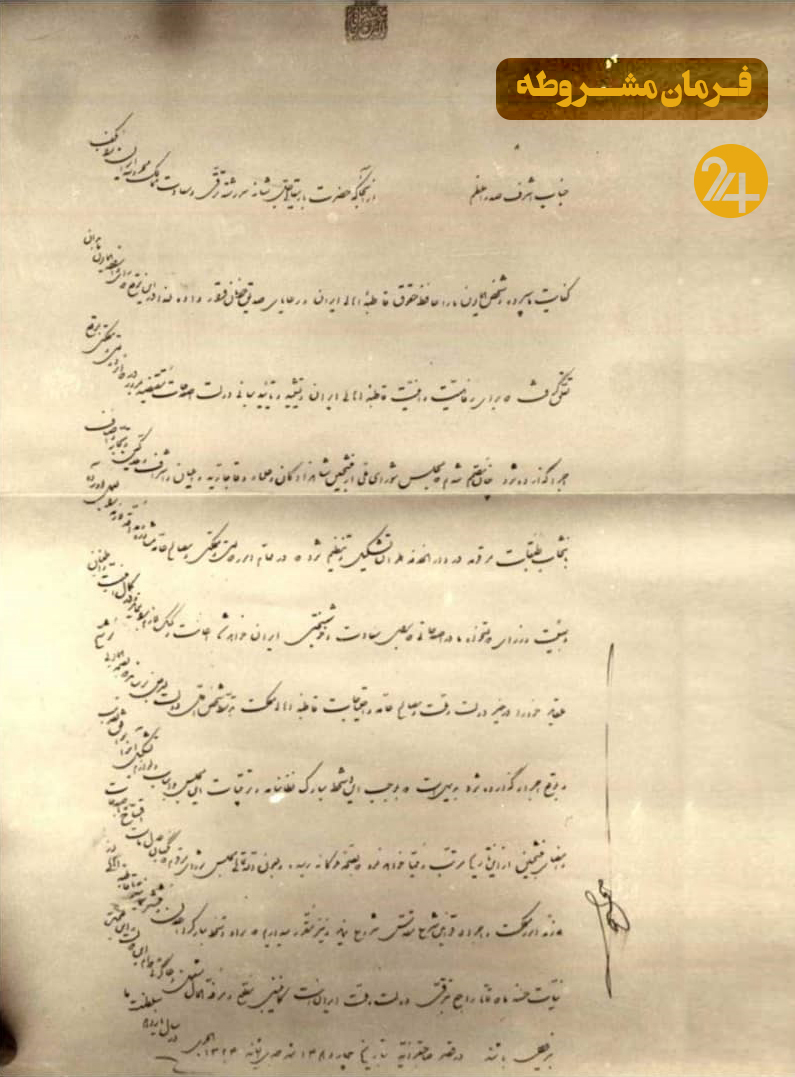 فرمان مشروطه
24
جناب اشرف صدراعظم از آنجا که حضرت باریتعالی جل شانه سررشته ترقی و سعادت ممالک محروسه ایران را بکف
کفایت ما سپرده و شخص همایون ما را حافظ حقوق قاطبه اهالی ایران و رعایای صدیق خودمان قرار داده لهذا در این موقع که رای و اراده همایون ما بدان
تعلق گرفت که برای رفاهیت و امنیت قاطبه اهالی ایران و تشیید و تایید مبانی دولت اصلاحات مقتضیه بمرور در دوایر دولتی و مملکتی بموقع
اجرا گذارده شود چنان مصمم شدیم که مجلس شورای ملی از منتخبین شاهزادگان و علماء و قاجاریه و اعیان و اشراف و ملاکین و تجار و اصناف
بانتخاب طبقات مرقومه در دارالخلافه طهران تشکیل و تنظیم شود که در مهام امور دولتی و مملکتی و مصالح عامه مشاوره و مداقه لازمه را بعمل آورده
بهیئت وزرای دولتخواه ما در اصلاحاتی که برای سعادت و خوشبختی ایران خواهد شد اعانت و کمک لازم را بنماید و در کمال امنیت و اطمینان
عقاید خود را در خیر دولت و ملت و مصالح عامه و احتیاجات قاطبه اهالی مملکت بتوسط شخص اول دولت بعرض برساند که بصحه همایونی موشح
و بموقع اجرا گذارده شود بدیهی است که بموجب این دستخط مبارک نظامنامه و ترتیبات این مجلس و اسباب و لوازم تشکیل آنرا موافق تصویب
و امضای منتخبین از این تاریخ مرتب و مهیا خواهند نمود که بصحه ملوکانه رسیده و بعون الله تعالی مجلس شورای مرقوم که نگهبان عدل ماست افتتاح و باصلاحات
لازمه امور مملکت و اجراء قوانین شرع مقدس شروع نماید و نیز مقرر میداریم که سواد دستخط مبارک را اعلان و منتشر نمایند تا قاطبه اهالی از
نیات حسنه ما که تماما راجع بترقی دولت و ملت ایران است کماینبغی مطلع و مرفه الحال مشغول دعاگوئی دوام این دولت و این نعمت
بیزوال باشند در قصر صاحبقرانیه بتاریخ چهاردهم ۱۳۲۴ هجری در سال یازدهم سلطنت ما